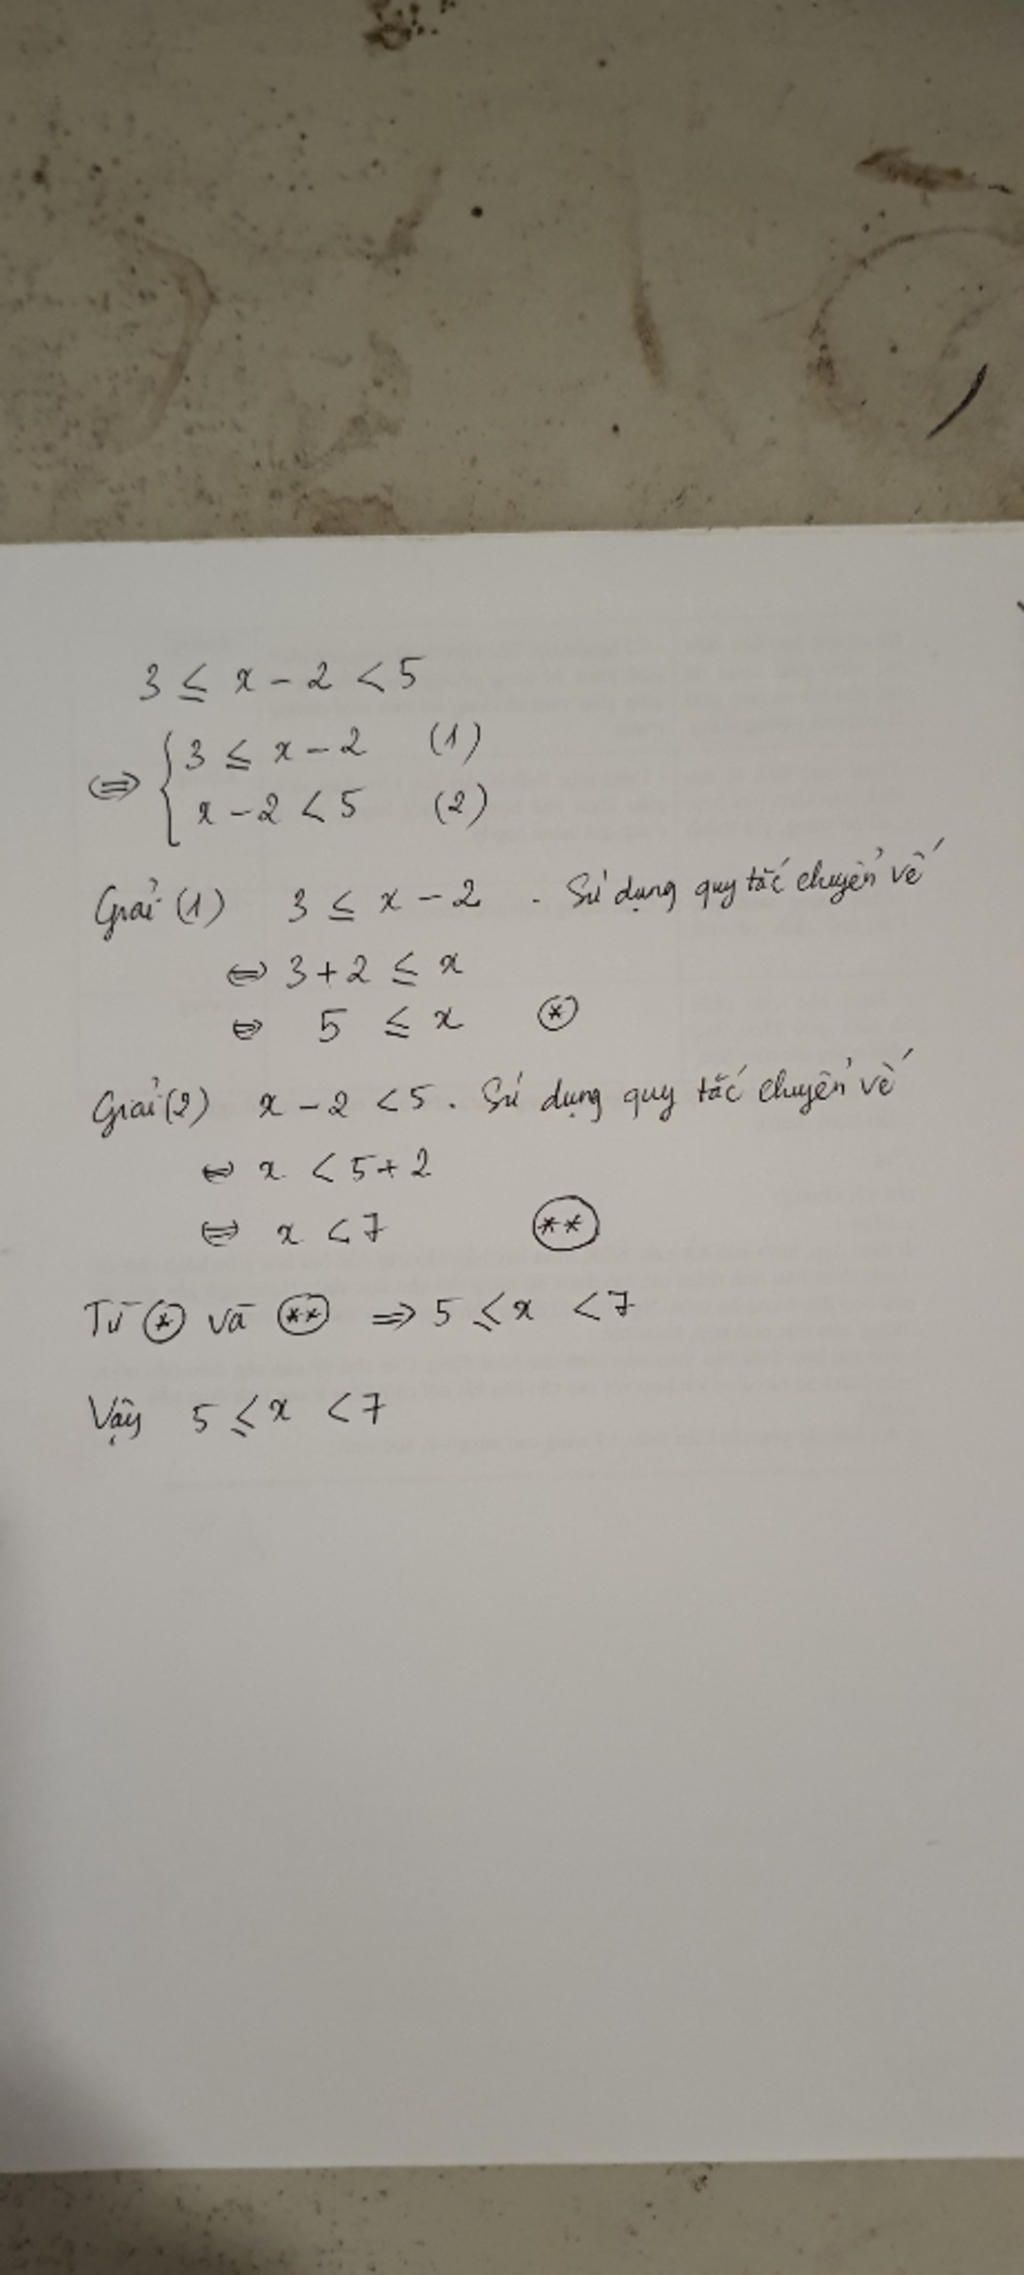 3 ≤ x - 2 < 5
⇔ { 3 ≤ x - 2 (1)
x - 2 < 5 (2)
Giải (1) 3 ≤ x - 2 . Sử dụng quy tắc chuyển vế
⇔ 3 + 2 ≤ x
⇔ 5 ≤ x (*)
Giải (2) x - 2 < 5 . Sử dụng quy tắc chuyển vế
⇔ x < 5 + 2
⇔ x < 7 (**)
Từ (*) và (**) ⇒ 5 ≤ x < 7
Vậy 5 ≤ x < 7